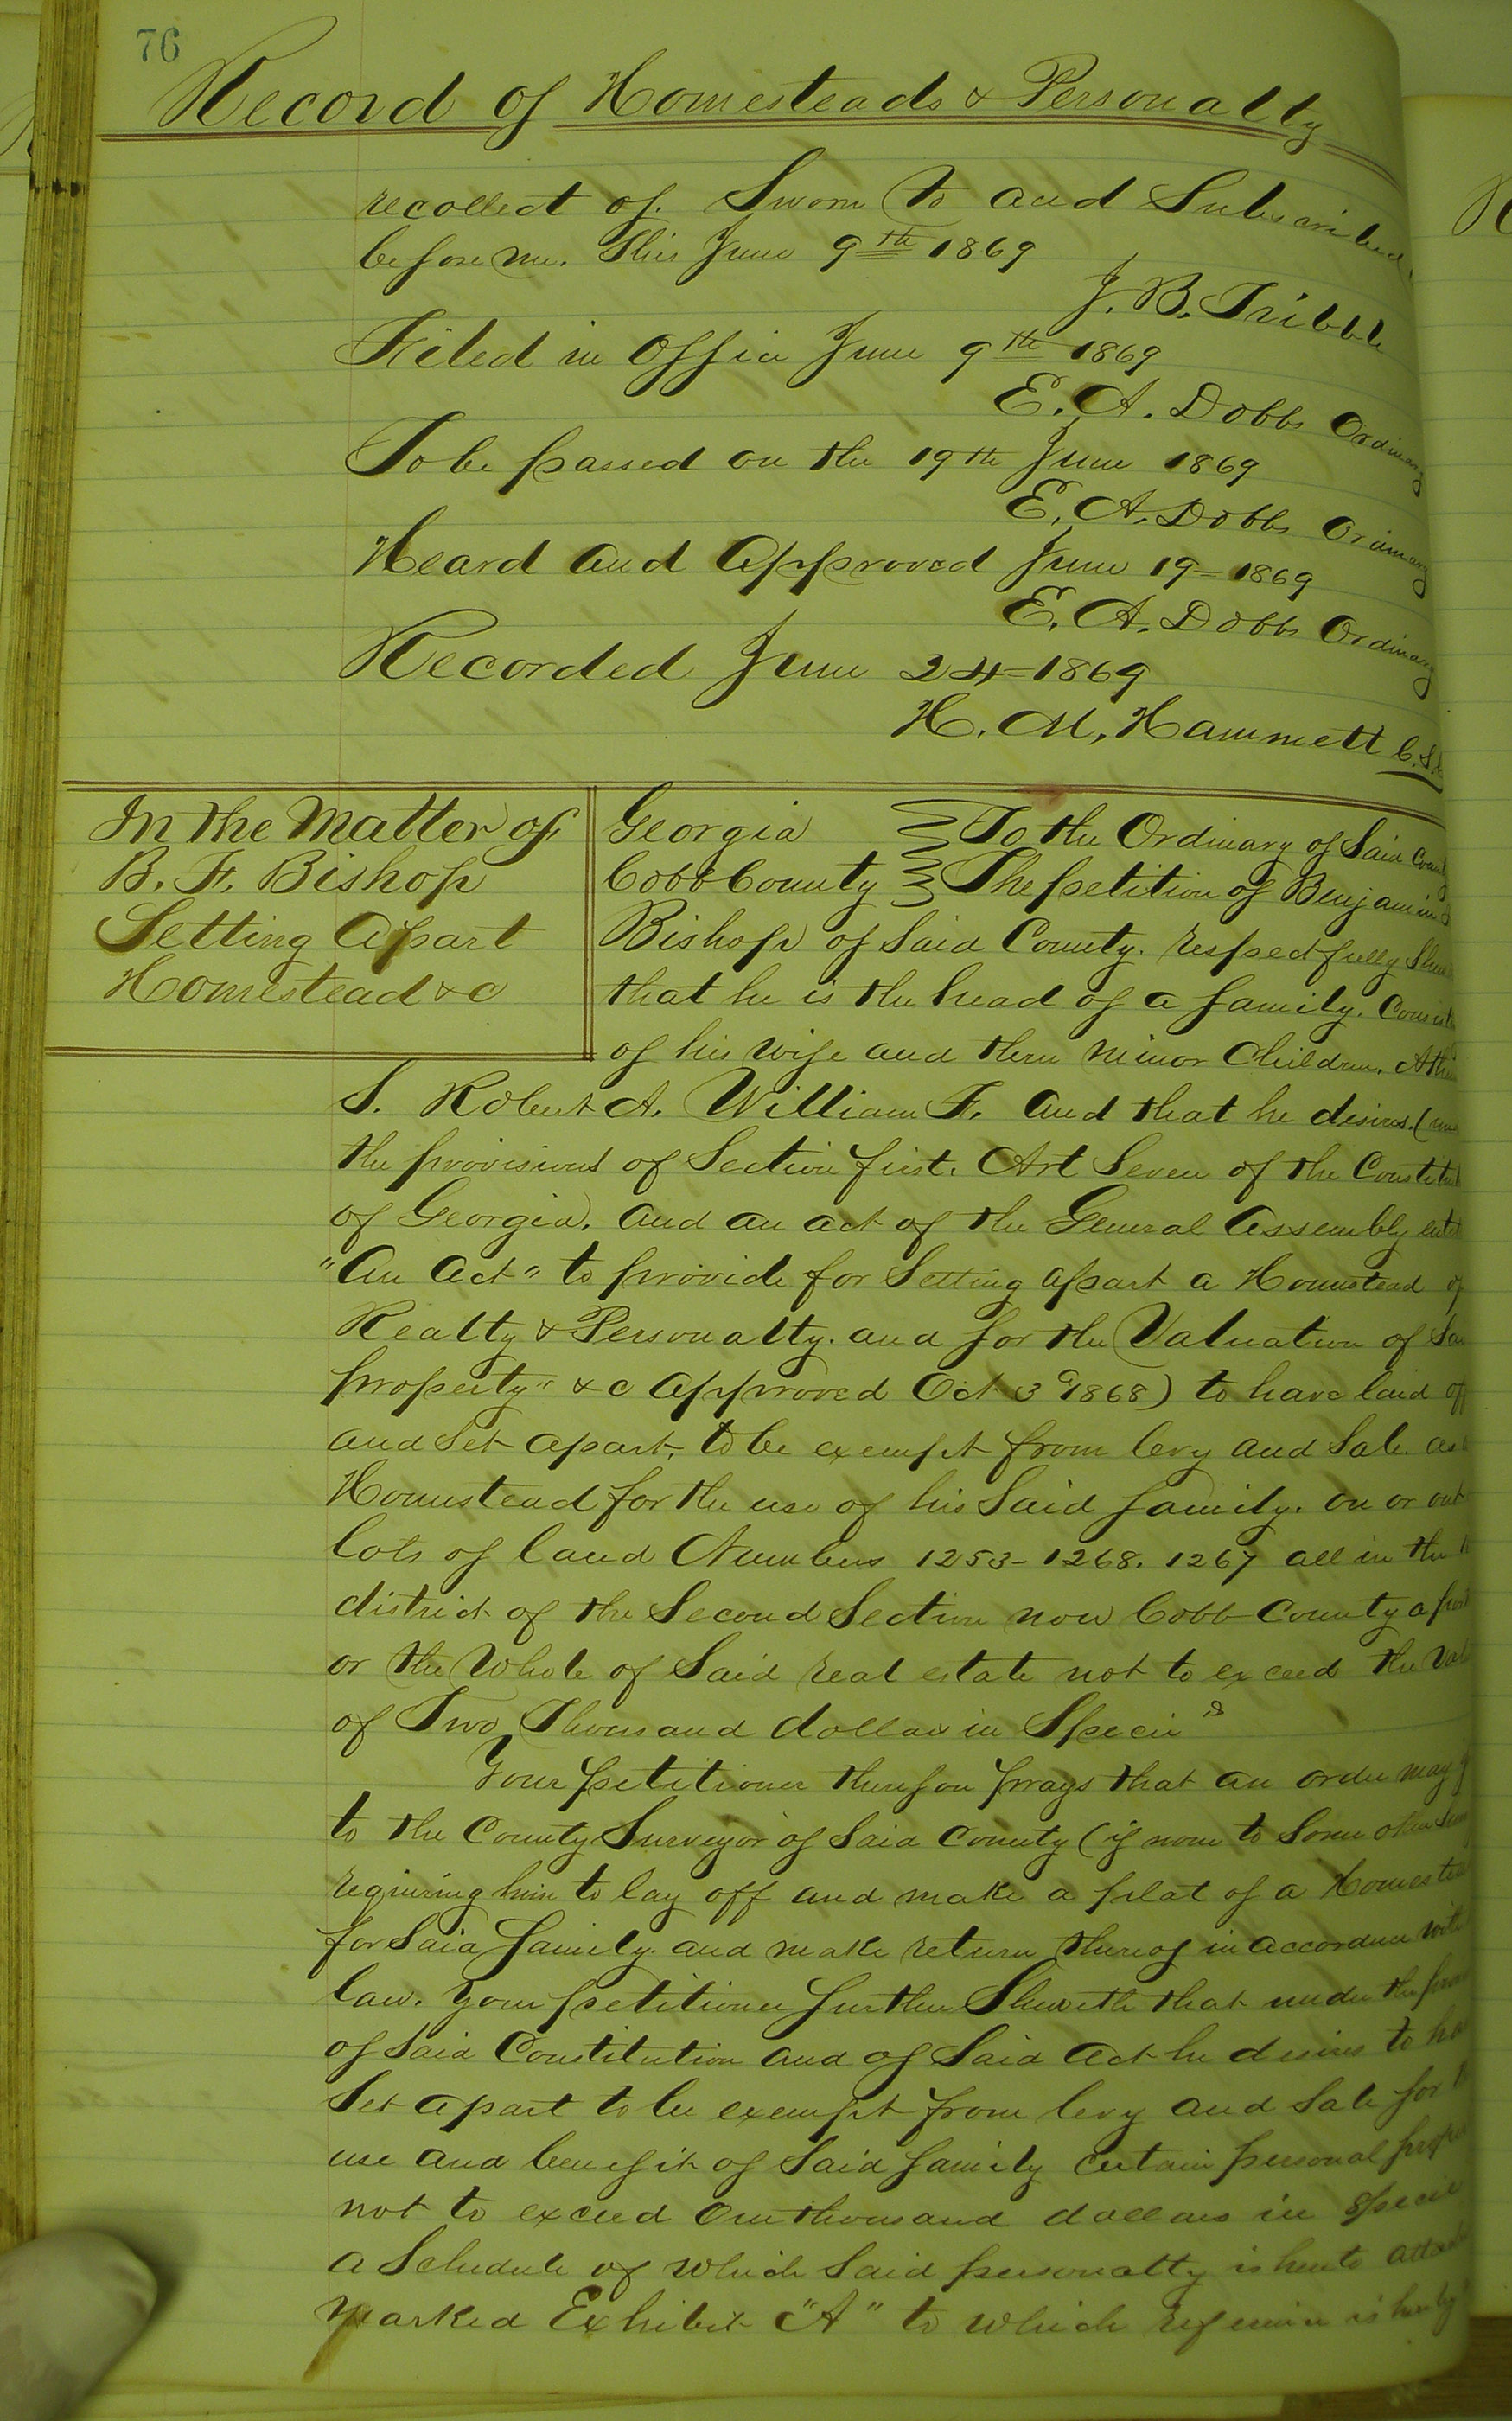 76
Record of Homesteads & Personalty
recollect of. Sworn to and Subscribed
before me. This June 9th 1869
J. B. Tribble
Filed in Office June 9th 1869
E. A. Dobbs Ordinary
To be passed on the 19th June 1869
E. A. Dobbs Ordinary
Heard and Approved June 19=1869
E. A. Dobbs Ordinary
Recorded June 24=1869
H. M. Hammett C.S.
In the Matter of
B. F. Bishop
Setting Apart
Homestead &c
Georgia To the Ordinary of Said County
Cobb County The petition of Benjamin
Bishop of Said County. respectfully
that he is the head of a family.
of his wife and them minor Children.
S. Robert A. William F. and that he desires. (
the provisions of Section first. Art Seven of the
of Georgia. and an act of the General Assembly
"An Act" to provide for Setting apart a Homestead of
Realty & Personalty. and for the Valuation of
property" &c Approved Oct 3d 1868) to have laid off
and Set apart, to be exempt from levy and Sale. as
Homestead for the use of his Said family. on or out
lots of land Numbers 1253-1268. 1267 all in the
district of the Second Section now Cobb County a
or the Whole of Said real estate not to exceed the
of Two Thousand dollars in Specie
Your petitioner therefore prays that an order may
to the County Surveyor of Said County (if none to Some other
requiring him to lay off and make a plat of a
for Said family. and make return thereof in accordance with
law. Your petitioner further Sheweth that under the
of Said Constitution and of Said Act he desires to
Set apart to be exempt from levy and Sale for
use and benefit of Said family certain personal
not to exceed One thousand dollars in Specie
a Schedule of which Said personalty is hereto
marked Exhibit "A" to which reference is hereby